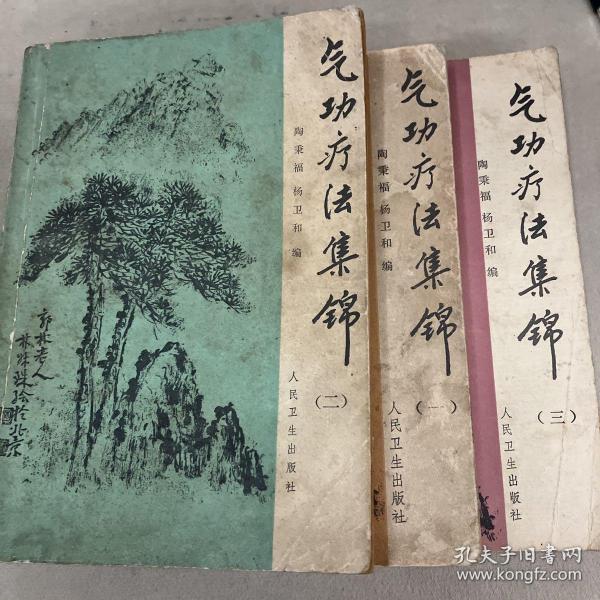 气功疗法集锦
陶秉福 杨卫和 编
(二)
人民卫生出版社
郭林老人
林晓珠绘于北京
气功疗法集锦
陶秉福 杨卫和 编
(一)
人民卫生出版社
气功疗法集锦
陶秉福 杨卫和 编
(三)
人民卫生出版社
孔夫子旧书网
www.kongfz.com